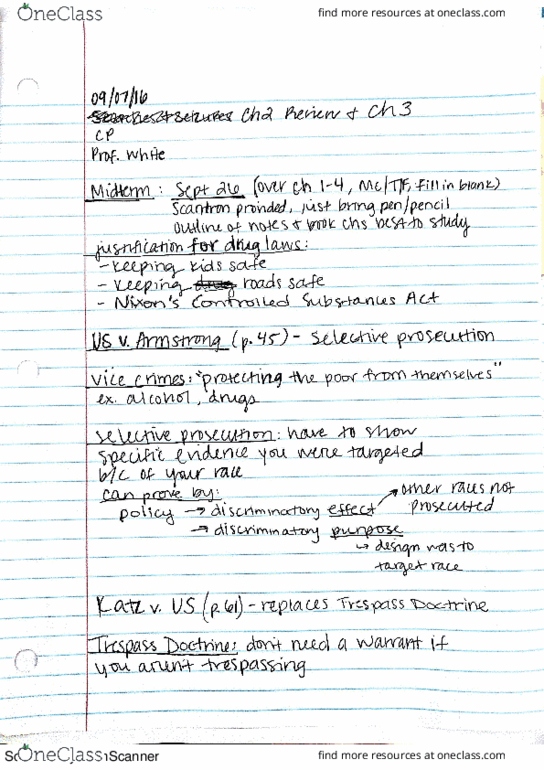 OneClass
find more resources at oneclass.com
09/07/16
Searches & seizures Ch2 Review & Ch3
CP
Prof. White
Midterm: Sept 26 (over ch 1-4, MC/T/F, fill in blank)
Scantron provided, just bring pen/pencil
Outline of notes & book chs best to study
justification for drug laws:
- keeping kids safe
- keeping drug roads safe
- Nixon's Controlled Substances Act
US v. Armstrong (p. 45) - selective prosecution
vice crimes: "protecting the poor from themselves"
ex. alcohol, drugs
selective prosecution: have to show
specific evidence you were targeted
b/c of your race
can prove by:
policy → discriminatory effect → other races not prosecuted
→ discriminatory purpose
↳ design was to
target race
Katz v. US (p. 61) - replaces Trespass Doctrine
Trespass Doctrine: don't need a warrant if
you arent trespassing
OneClass
Scanner
find more resources at oneclass.com